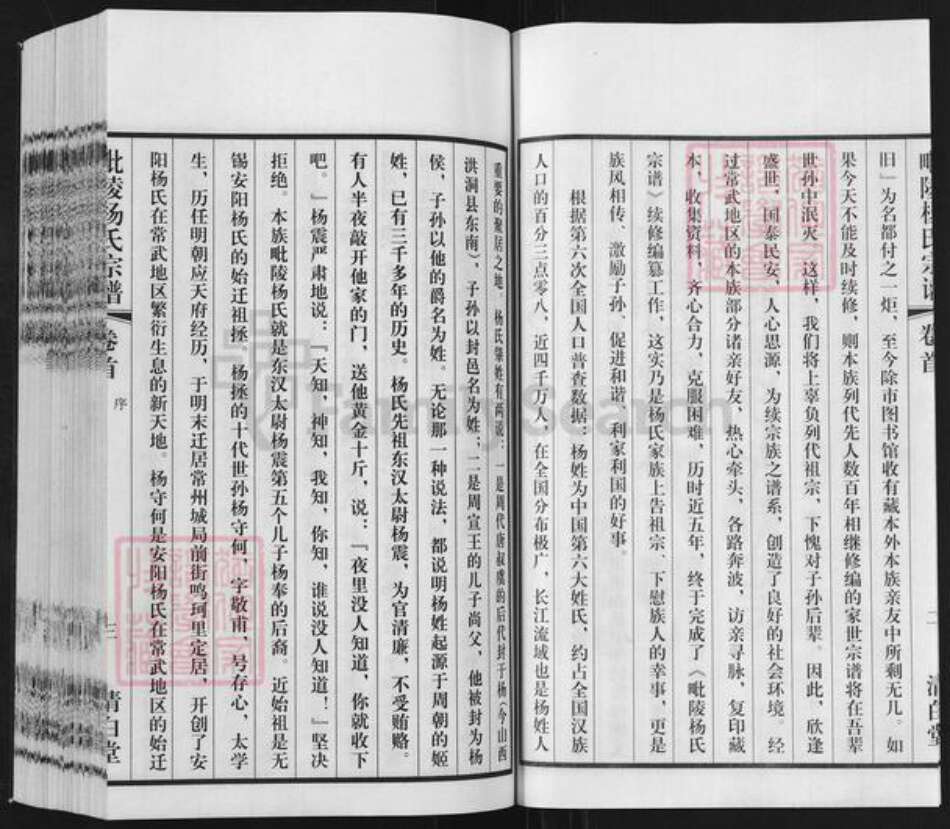 毗陵杨氏宗谱
卷首
二
清白堂
旧』为名都付之一炬，至今除市图书馆收有藏本外本族亲友中所剩无几。如
果今天不能及时续修，则本族列代先人数百年相继修编的家世宗谱将在吾辈
世孙中泯灭，这样，我们将上辜负列代祖宗，下愧对子孙后辈。因此，欣逢
盛世，国泰民安、人心思源，为续宗族之谱系，创造了良好的社会环境。经
过常武地区的本族部分诸亲好友，热心牵头，各路奔波，访亲寻脉，复印藏
本，收集资料，齐心合力，克服困难，历时近五年，终于完成了《毗陵杨氏
宗谱》续修编纂工作，这实乃是杨氏家族上告祖宗、下慰族人的幸事，更是
族风相传、激励子孙、促进和谐、利家利国的好事。
根据第六次全国人口普查数据：杨姓为中国第六大姓氏，约占全国汉族
人口的百分三点零八，近四千万人，在全国分布极广，长江流域也是杨姓人
重要的聚居之地。杨氏肇姓有两说：一是周代唐叔虞的后代封于杨（今山西
洪洞县东南），子孙以封邑名为姓；二是周宣王的儿子尚父，他被封为杨
侯，子孙以他的爵名为姓。无论那一种说法，都说明杨姓起源于周朝的姬
姓，已有三千多年的历史。杨氏先祖东汉太尉杨震，为官清廉，不受贿赂。
有人半夜敲开他家的门，送他黄金十斤，说：『夜里没人知道，你就收下
吧。』杨震严肃地说：『天知，神知，我知，你知，谁说没人知道！』坚决
拒绝。本族毗陵杨氏就是东汉太尉杨震第五个儿子杨奉的后裔。近始祖是无
锡安阳杨氏的始迁祖拯，杨拯的十代世孙杨守何，字敬甫，号存心，太学
生，历任明朝应天府经历，于明末迁居常州城局前街鸣珂里定居，开创了安
阳杨氏在常武地区繁衍生息的新天地。杨守何是安阳杨氏在常武地区的始迁
毗陵杨氏宗谱
卷首
序
三
清白堂
FamilySearch